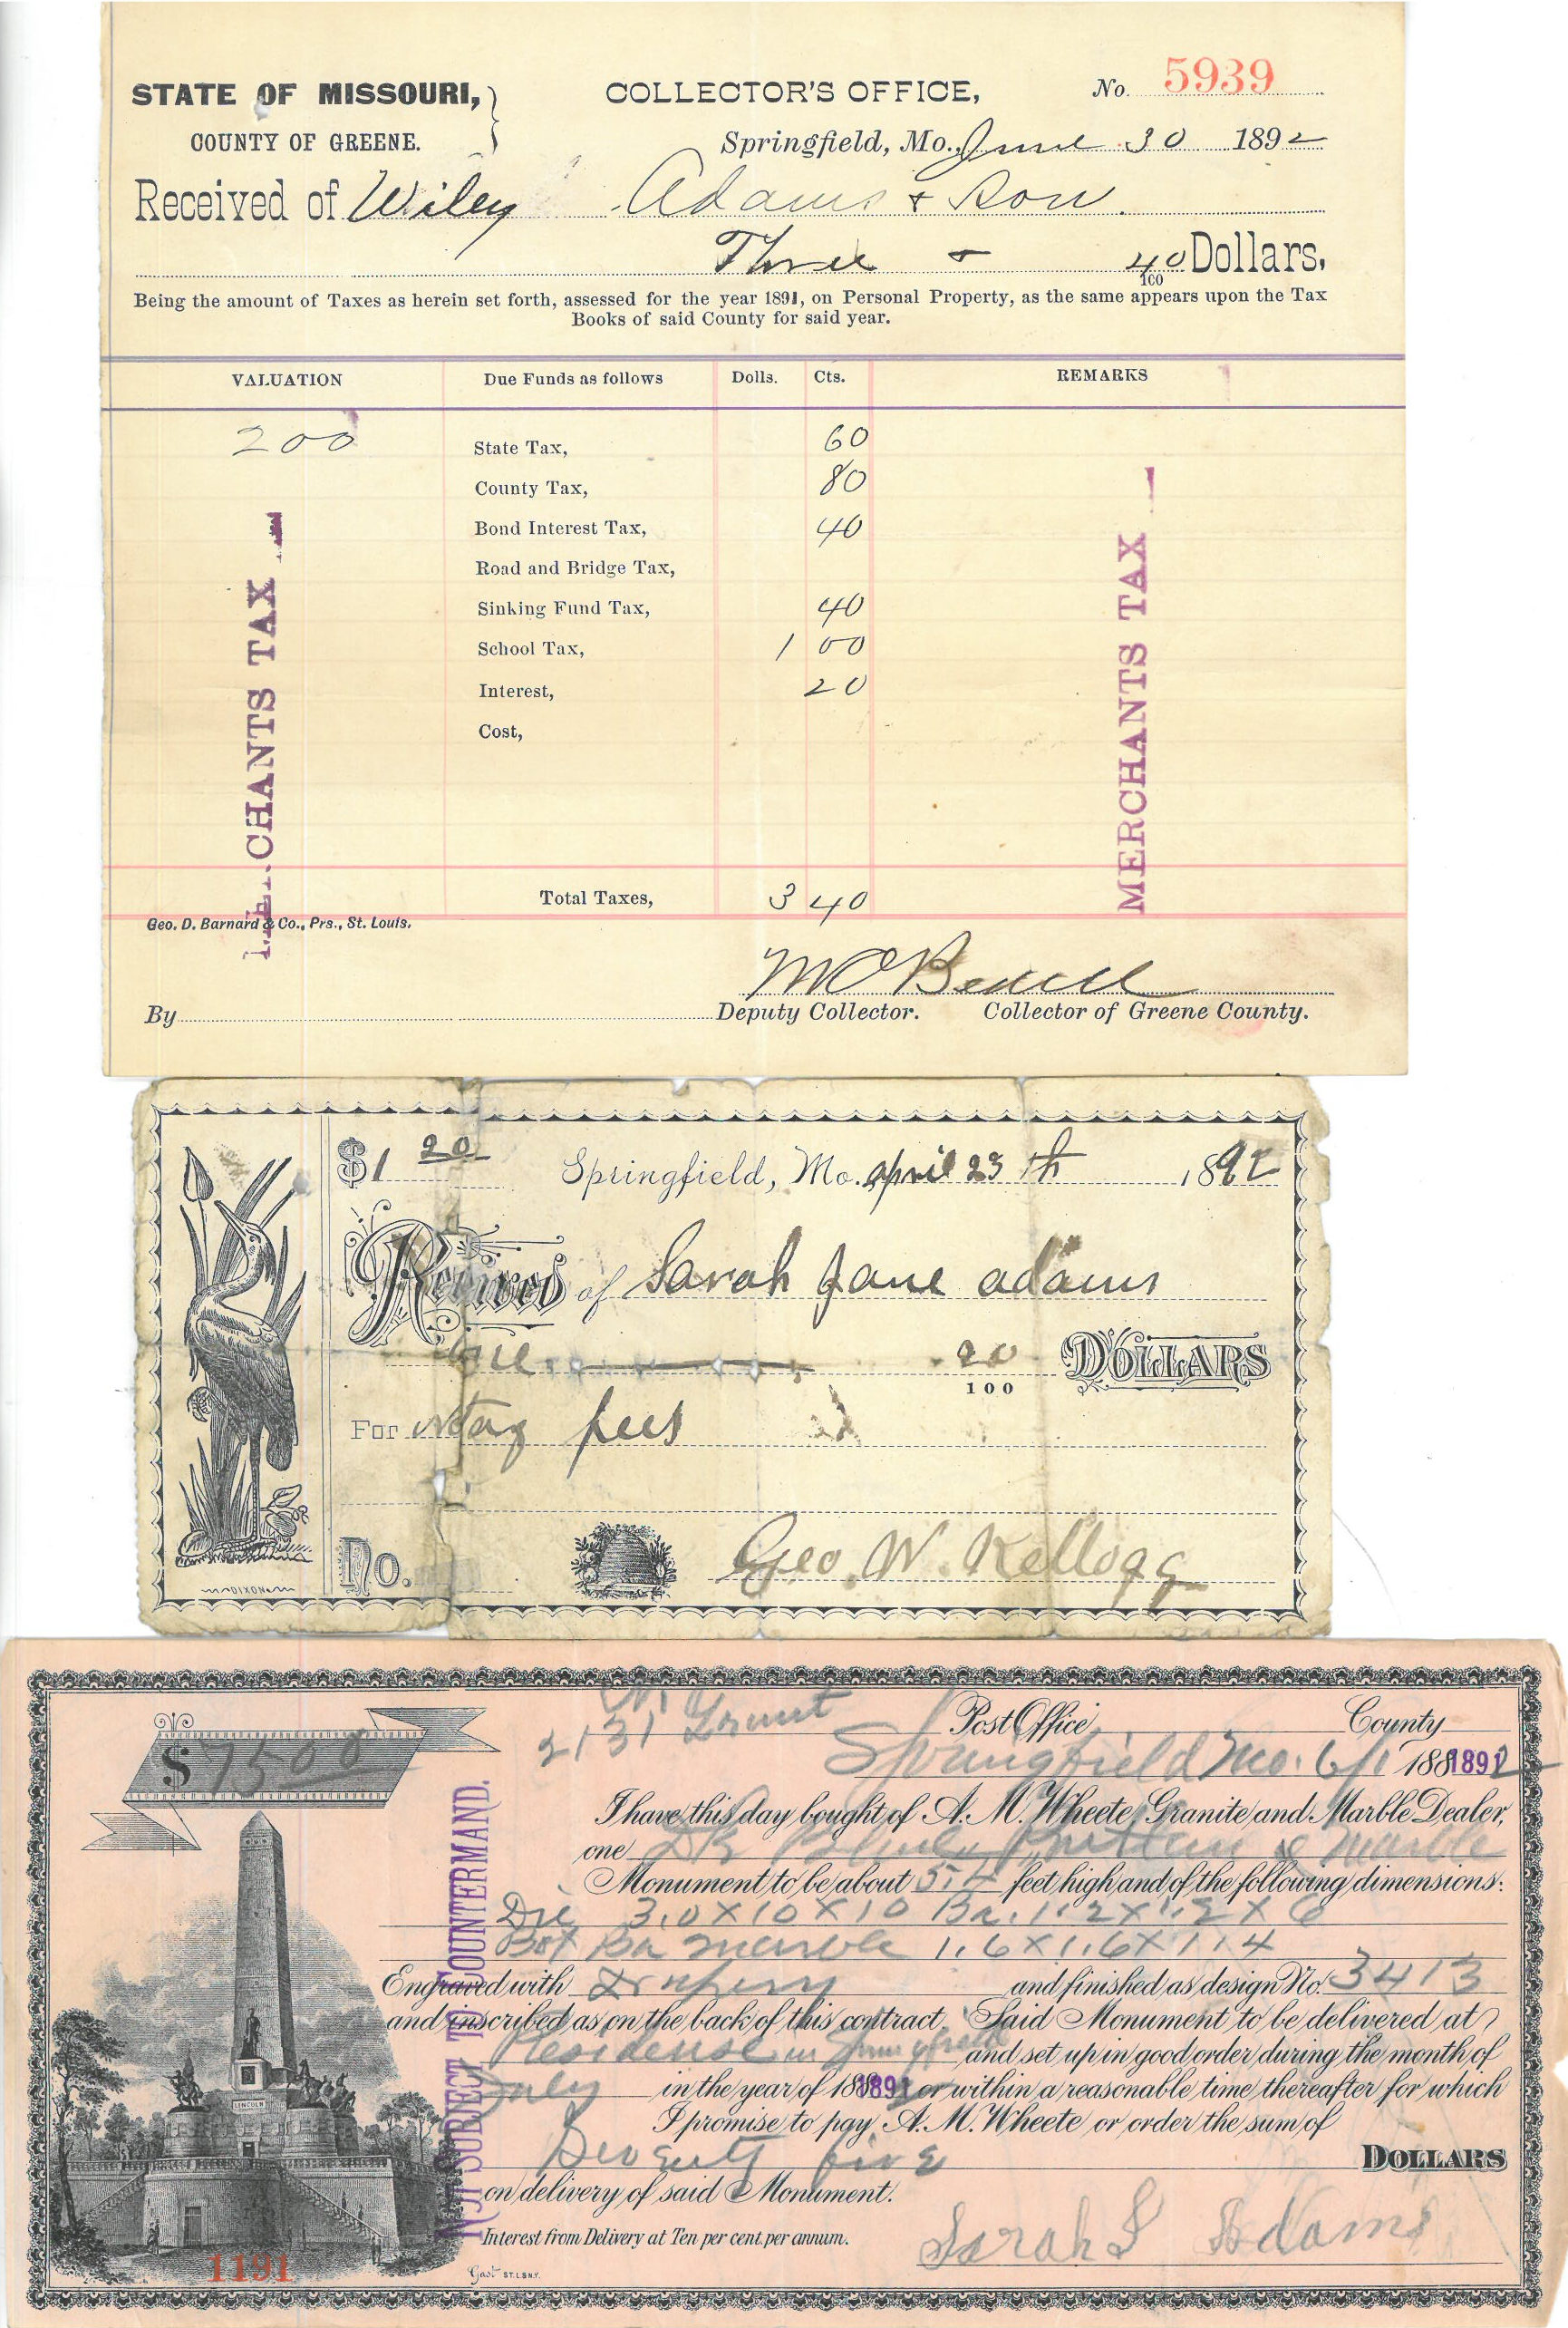 STATE OF MISSOURI,
COUNTY OF GREENE.
COLLECTOR'S OFFICE,
No. 5939
Springfield, Mo., June 30 1892
Received of Wiley Adams & Son
Three & 40/100 Dollars,
Being the amount of Taxes as herein set forth, assessed for the year 1891, on Personal Property, as the same appears upon the Tax
Books of said County for said year.
VALUATION Due Funds as follows Dolls. Cts. REMARKS
200 State Tax, 60
County Tax, 80
Bond Interest Tax, 40
Road and Bridge Tax,
Sinking Fund Tax, 40
School Tax, 1 00
Interest, 20
Cost,
MERCHANTS TAX
MERCHANTS TAX
Total Taxes, 3 40
Geo. D. Barnard & Co., Prs., St. Louis.
By Deputy Collector. Collector of Greene County.
$1 20 Springfield, Mo. april 23 th 1892
Received of Sarah Jane adams
one 20/100 DOLLARS
For fees
DIXON
No. Geo. W. Kellogg
2131 Grant
Post Office County
$ 7500
Springfield Mo. 6/1 1881892
I have this day bought of A. M. Wheete, Granite and Marble Dealer,
one Marble
Monument to be about 5.4 feet high and of the following dimensions:
Die 3.0 X 10 X 10 Ba. 1.2 X 1.2 X 6
Bot Ba Marble 1.6 X 1.6 X 1.4
Engraved with Drapery and finished as design No. 3413
and inscribed as on the back of this contract. Said Monument to be delivered at
Residense in Springfield and set up in good order during the month of
July in the year of 1881892 or within a reasonable time thereafter for which
I promise to pay A. M. Wheete or order the sum of
Seventy five DOLLARS
on delivery of said Monument.
Interest from Delivery at Ten per cent. per annum.
Sarah J Adams
NOT SUBJECT TO COUNTERMAND.
LINCOLN
1191
Gast ST. L. & N.Y.